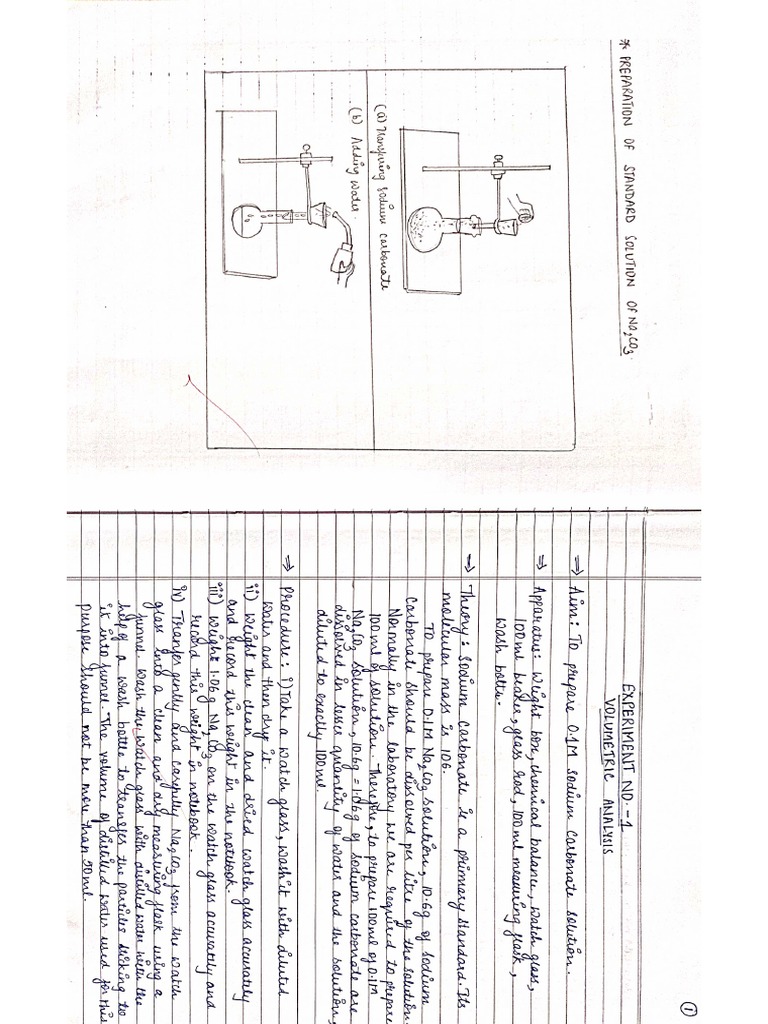 * PREPARATION OF STANDARD SOLUTION OF Na₂CO₃.
(a) Transfering sodium carbonate
(b) Adding water.
1
EXPERIMENT NO.-1
VOLUMETRIC ANALYSIS
⇒ Aim: To prepare 0.1M sodium carbonate solution.
⇒ Apparatus: Weight box, chemical balance, watch glass,
100ml beaker, glass rod, 100ml measuring flask,
wash bottle.
⇒ Theory: Sodium Carbonate is a primary standard. Its
molecular mass is 106.
To prepare 0.1M Na₂CO₃ solution, 10.6g of sodium
carbonate should be dissolved per litre of the solution.
Normally in the laboratory we are required to prepare
100ml of solution. Therefore, to prepare 100ml of 0.1M
Na₂CO₃ solution, 10.6g = 1.06g of sodium carbonate are
dissolved in lesser quantity of water and the solution,
diluted to exactly 100ml.
⇒ Procedure: i) Take a watch glass, wash it with distilled
water and then dry it.
ii) Weight the clean and dried watch glass accurately
and record this weight in the notebook.
iii) Weight 1.06g Na₂CO₃ on the watch glass accurately and
record this weight in notebook.
iv) Transfer gently and carefully Na₂CO₃ from the watch
glass into a clean and dry measuring flask using a
funnel. Wash the watch glass with distilled water with the
help of a wash bottle to transfer the particles sticking to
it into funnel. The volume of distilled water used for this
purpose should not be more than 50ml.